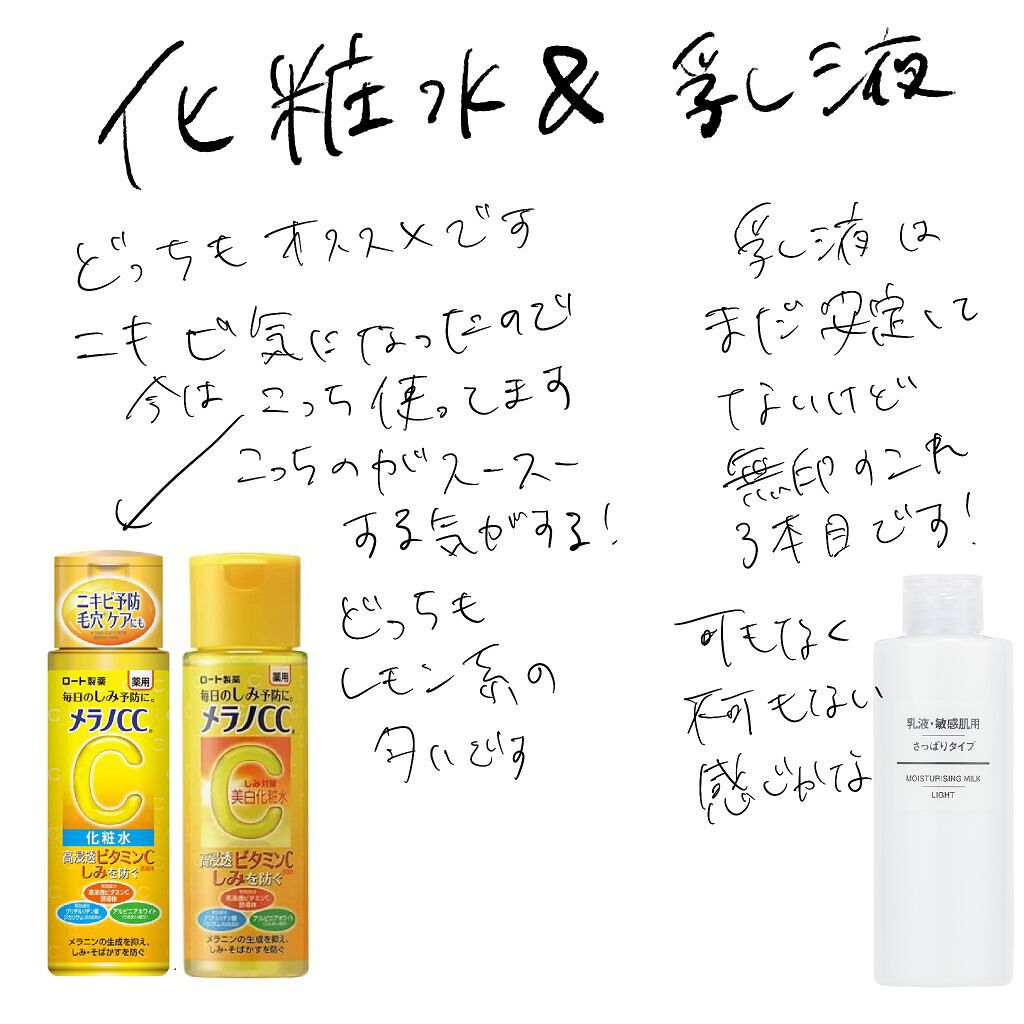 化粧水 & 乳液
どっちもオススメです
ニキビ気になったので
今はこっち使ってます
こっちのがスースー
する気がする!
どっちも
レモン系の
匂いです
乳液は
まだ安定して
ないけど
無印のこれ
3本目です!
可もなく
不可もない
感じかな
ニキビ予防
毛穴ケアにも
ロート製薬
薬用
毎日のしみ予防に。
メラノCC
C
化粧水
高浸透ビタミンC
しみを防ぐ
高浸透ビタミンC
誘導体
グリチルリチン酸
アルピニアホワイト
メラニンの生成を抑え、
しみ・そばかすを防ぐ
ロート製薬
薬用
毎日のしみ予防に。
メラノCC
C
しみ対策
美白化粧水
高浸透ビタミンC
しみを防ぐ
高浸透ビタミンC
誘導体
アルピニアホワイト
メラニンの生成を抑え、
しみ・そばかすを防ぐ
乳液・敏感肌用
さっぱりタイプ
MOISTURISING MILK
LIGHT